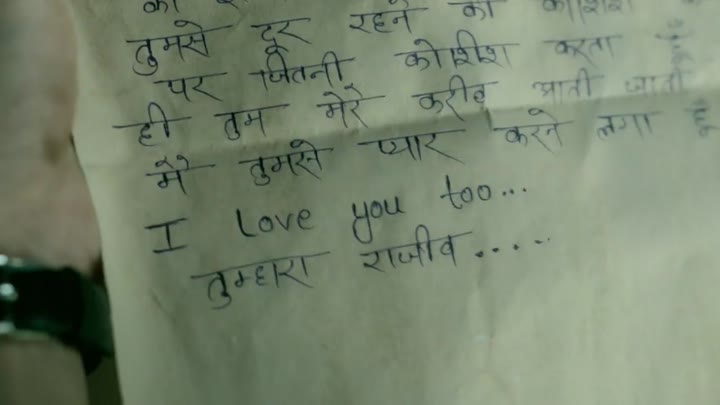 तुमसे दूर रहने की कोशिश
पर जितनी कोशिश करता
ही तुम मेरे करीब आती जाती
मै तुमसे प्यार करने लगा
I Love you too...
तुम्हारा राजीव.....